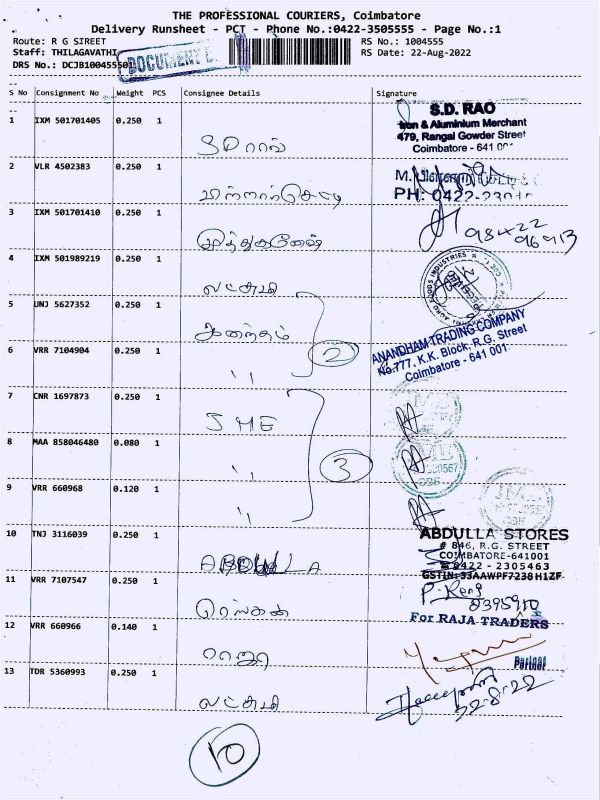 THE PROFESSIONAL COURIERS, Coimbatore
Delivery Runsheet - PCT - Phone No.:0422-3505555 - Page No.:1
Route: R G STREET RS No.: 1004555
Staff: THILAGAVATHI RS Date: 22-Aug-2022
DRS No.: DCJB100455501 DOCUMENT
S No Consignment No Weight PCS Consignee Details Signature
1 IXM 501701405 0.250 1
S.D. RAO
Iron & Aluminium Merchant
479, Rangai Gowder Street
Coimbatore - 641 001
SD ராவ்
2 VLR 4502383 0.250 1
PH: 0422-2301
3 IXM 501701410 0.250 1
98422
96913
முத்துகணேஷ்
4 IXM 501989219 0.250 1
INDUSTRIES
லட்சுமி
5 UNJ 5627352 0.250 1
ANANDHAM TRADING COMPANY
No.777, K.K. Block, R.G. Street
Coimbatore - 641 001
ஆனந்தம்
2
6 VRR 7104904 0.250 1
,,
7 CNR 1697873 0.250 1
JME
8 MAA 858046480 0.080 1
3
,,
9 VRR 660968 0.120 1
,,
10 TNJ 3116039 0.250 1
ABDULLA STORES
# 846, R.G. STREET
COIMBATORE-641001
0422 - 2305463
GSTIN: 33AAWPF7238H1ZF
ABDULLA
11 VRR 7107547 0.250 1
For RAJA TRADERS
ரெங்கன்
12 VRR 660966 0.140 1
Partner
ராஜா
13 TDR 5360993 0.250 1
22-8-22
லட்சுமி
10